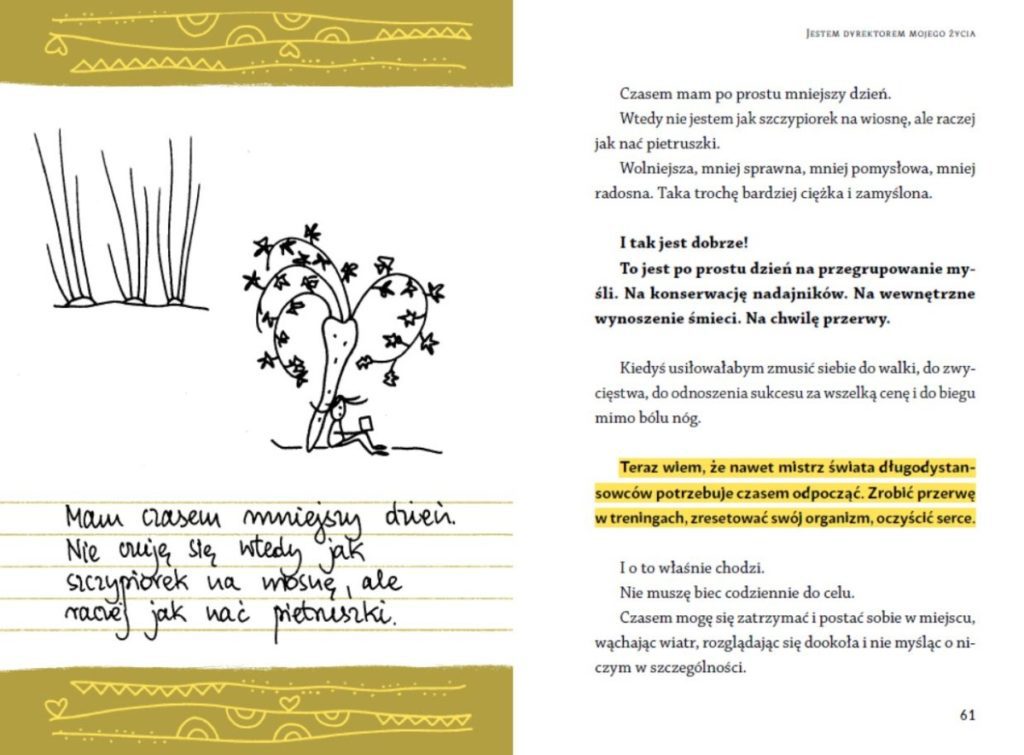 Mam czasem mniejszy dzień.
Nie czuję się wtedy jak
szczypiorek na wiosnę, ale
raczej jak nać pietruszki.
Jestem dyrektorem mojego życia
Czasem mam po prostu mniejszy dzień.
Wtedy nie jestem jak szczypiorek na wiosnę, ale raczej
jak nać pietruszki.
Wolniejsza, mniej sprawna, mniej pomysłowa, mniej
radosna. Taka trochę bardziej ciężka i zamyślona.
I tak jest dobrze!
To jest po prostu dzień na przegrupowanie my-
śli. Na konserwację nadajników. Na wewnętrzne
wynoszenie śmieci. Na chwilę przerwy.
Kiedyś usiłowałabym zmusić siebie do walki, do zwy-
cięstwa, do odnoszenia sukcesu za wszelką cenę i do biegu
mimo bólu nóg.
Teraz wiem, że nawet mistrz świata długodystan-
sowców potrzebuje czasem odpocząć. Zrobić przerwę
w treningach, zresetować swój organizm, oczyścić serce.
I o to właśnie chodzi.
Nie muszę biec codziennie do celu.
Czasem mogę się zatrzymać i postać sobie w miejscu,
wąchając wiatr, rozglądając się dookoła i nie myśląc o ni-
czym w szczególności.
61